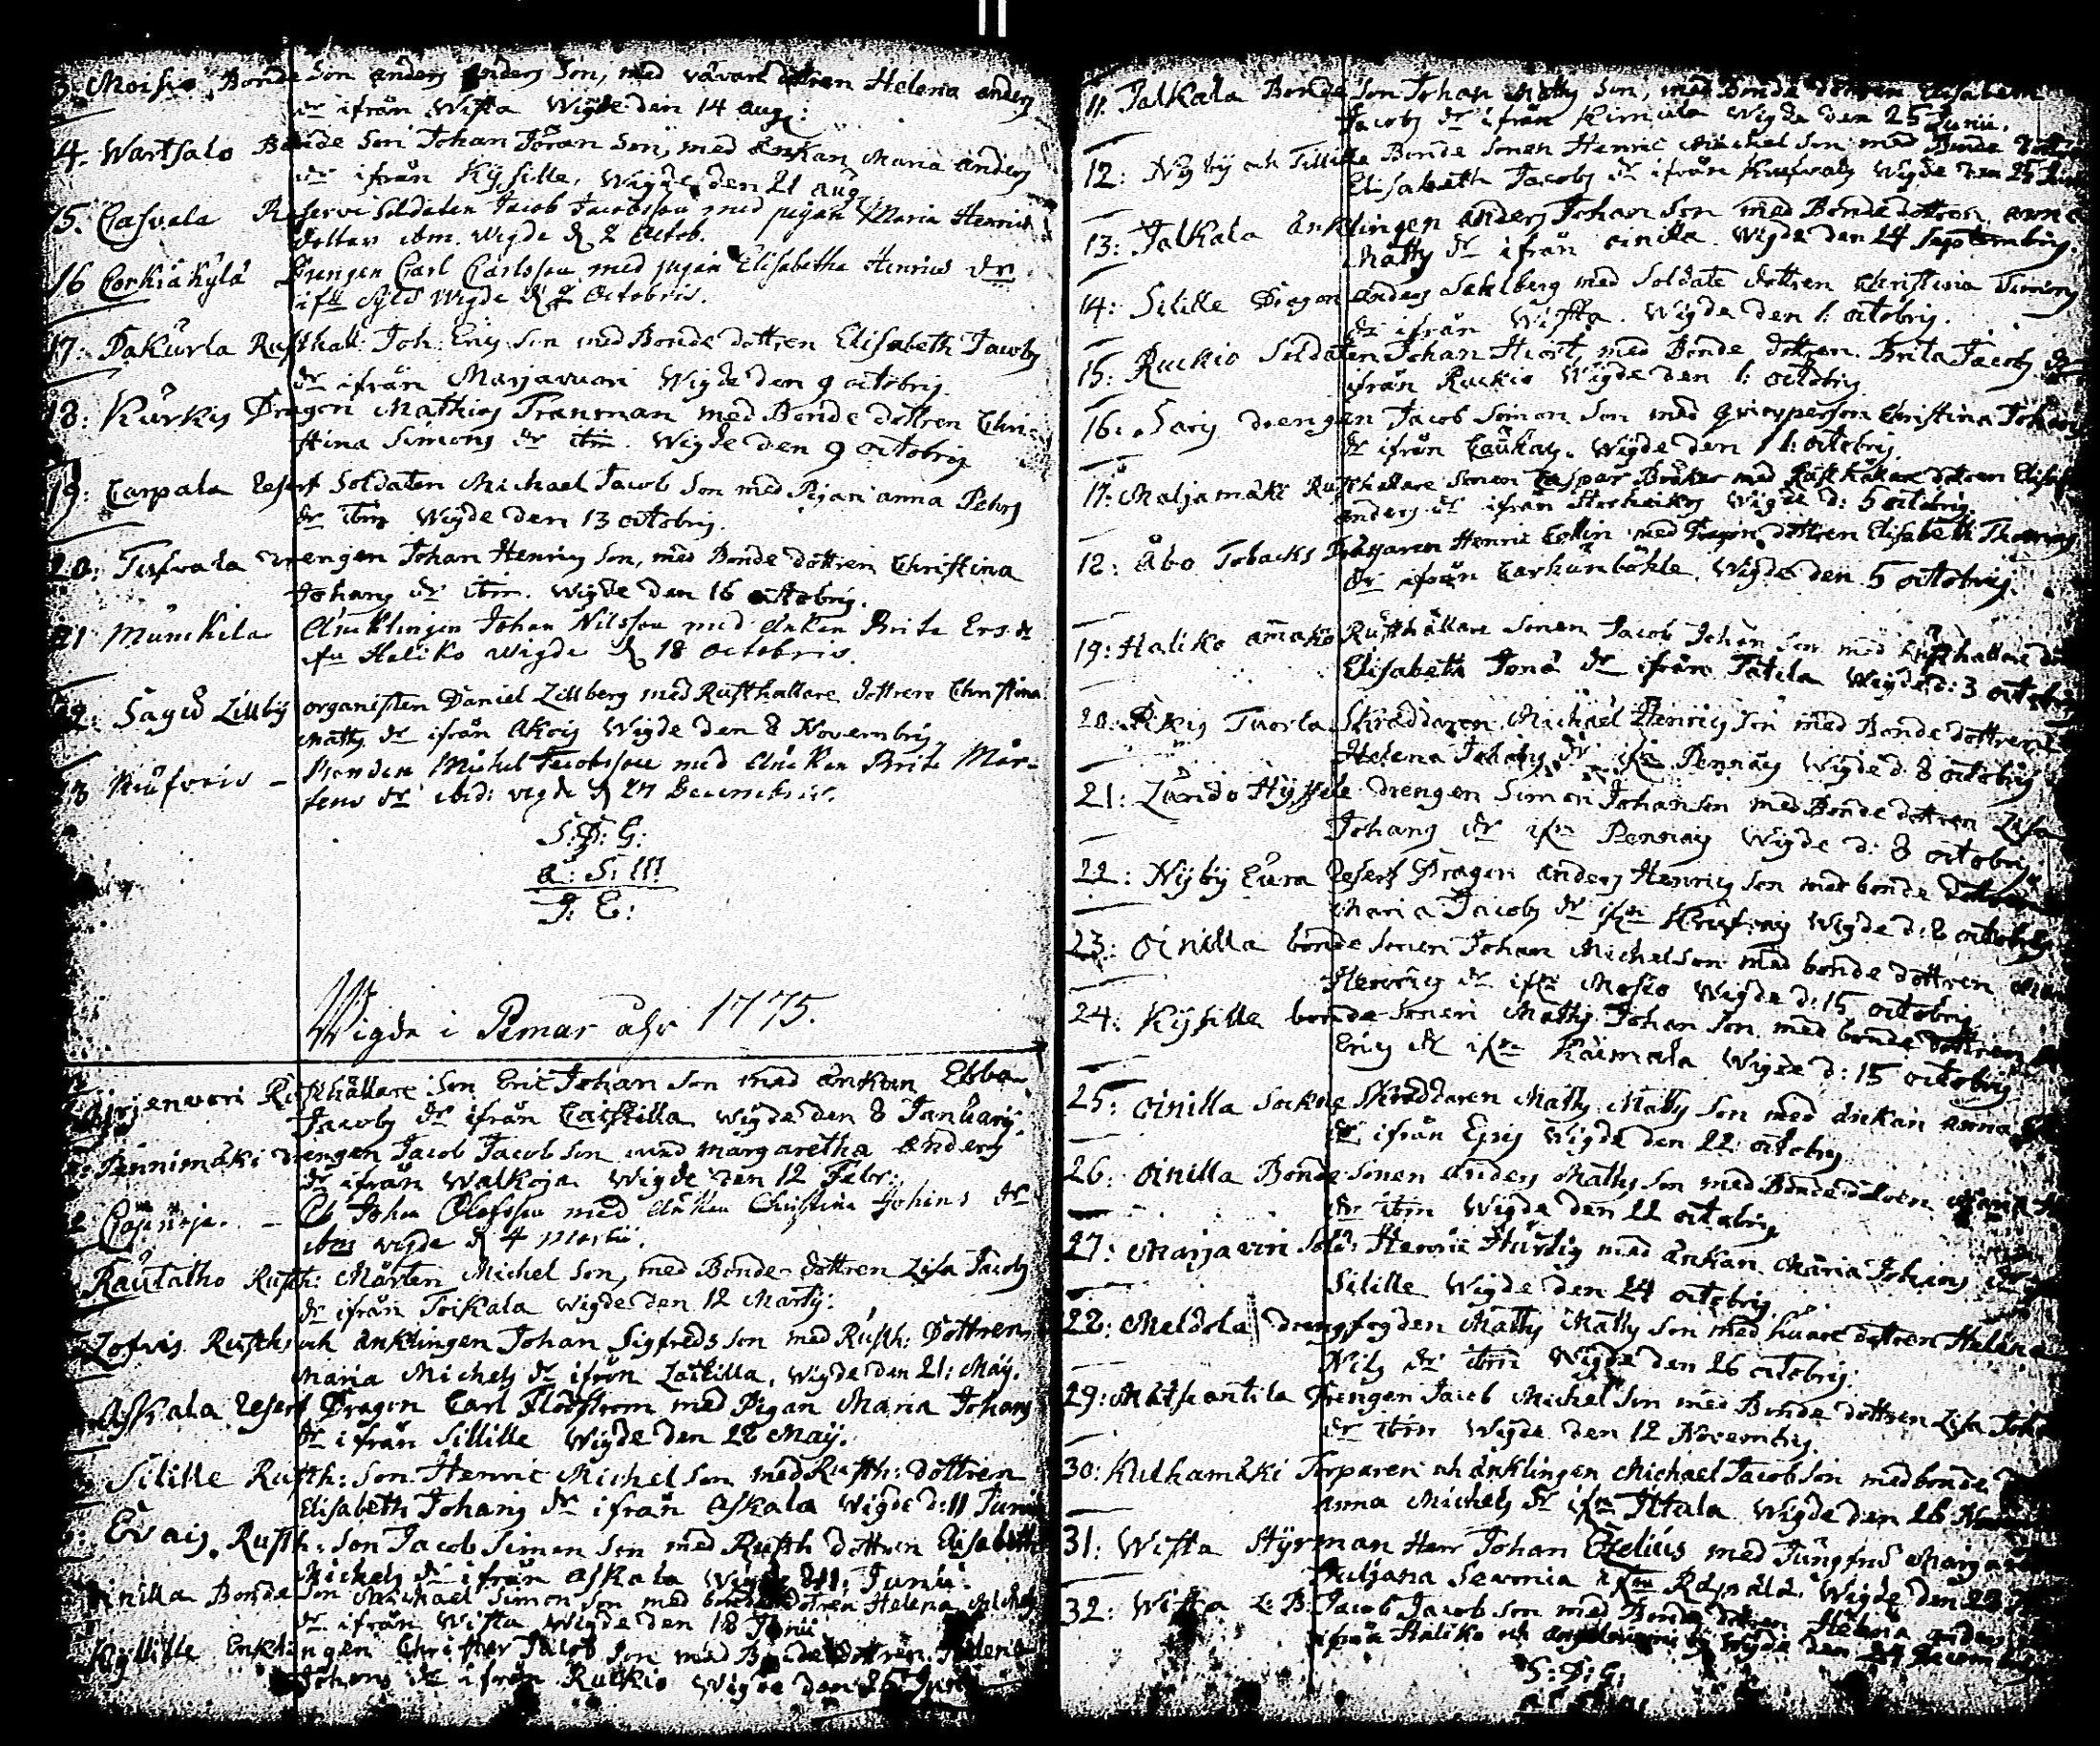 Moisio Bonde Son anders anders Son, med vävare dottren Helena anders
dr ifrån Wista Wigde den 14 aug:
14. Wartsalo Bonde Son Johan Jöran Son, med änkan Maria anders
dr ifrån Kysille, Wigde den 21 aug
15. Casvala Reserve Soldaten Jacob Jacobsson med pigan Maria Henrics
dotter ibm. Wigde d 2 Octob.
16 Corkiakylä Drengen Carl Carlsson med pigan Elisabetha Henrics dr
Wigde d 2 Octobris.
17: Dakurla Rusthåll: Joh: Erics Son med Bonde dottren Elisabeth Jacobs
dr ifrån Marjavuori Wigde den 9 octobris
18: Kurkis Dragon Mathias Tranman med Bonde dottren Chri-
stina Simons dr ibm. Wigde den 9 octobris
19: Carpala Reserf Soldaten Michael Jacob Son med Pigan anna Pehrs
dr ibm Wigde den 13 octobris.
20: Tufvala drengen Johan Henrics Son, med Bonde dottren Christina
Johans dr ibm. Wigde den 16 octobris.
21 Munckila Encklingen Johan Nilsson med Enkan Brita Ers. dr
ifrn Haliko Wigde d 18 Octobris.
22: Sagu Lillby organisten Daniel Lillberg med Rusthållare dottren Christina
Matts dr ifrån Akois Wigde den 8 Novembris
Bonden Michel Jacobsson med Enckan Brita Mår-
tens dr ibid: vigde d 27 Decembris.
S: D: G:
a: S: III
J: E:
Wigde i Pemar åhr 1775.
Rusthållare Son Eric Johan Son med änkan Ebba
Jacobs dr ifrån Caistilla Wigde den 8 Januarij.
Pännimäki drengen Jacob Jacob Son med margaretha anders
dr ifrån Walkoja Wigde den 12 Febr:
Johan Olofsson med Enkan Christina Johans dr
ibm wigde d 4 Martii.
Rautatho Rusth: Mårten Michel Son, med Bonde dottren Lisa Jacobs
dr ifrån Toikala Wigde den 12 Martij:
Lofvis Rusth: och änklingen Johan Sigfreds Son med Rusth: Dottren
Maria Michels dr ifrån Laitilla, Wigde den 21: Maij.
Askala Reserf Dragon Carl Flodstrom med Pigan Maria Johans
dr ifrån Sillille Wigde den 28 Maij.
Silille Rusth: Son Henric Michel Son med Rusth: dottren
Elisabeth Johans dr ifrån Askala Wigde d: 11 Junii
Evais Rusth: Son Jacob Simon Son med Rusth dottren Elisabeth
Michels dr ifrån Askala Wigde d 11: Junii.
Oinilla Bonde Son Michael Simon Son med bonde dottren Helena Michels
dr ifrån Wista Wigde den 18 Junii
Kyllille Enklingen Christer Jacob Son med Bonde dottren Helena
Johans dr ifrån Ruckio Wigde den 25
11. Jalkala Bonde Son Johan Matts Son, med Bonde dottren Elisabeth
Jacobs dr ifrån Kirnula Wigde den 25 Junii.
12: Nyby och Tillille Bonde Sonen Henric Michel Son med Bonde dottren
Elisabeth Jacobs dr ifrån Krufvals Wigde den 25
13: Jalkala änklingen anders Johan Son med Bonde dottren anna
Matts dr ifrån oinilla. Wigde den 24 Septembris.
14: Silille Dragon anders Sahlberg med Soldate dottren Christina Simons
dr ifrån Wista. Wigde den 1: octobris.
15: Ruckio Soldaten Johan Hiort, med Bonde dottren Brita Jacobs dr
ifrån Ruckio Wigde den 1: octobris
16: Saris drengen Jacob Simon Son med qvinsperson Christina Johans
dr ifrån Caukas. Wigde den 1: octobris.
17: Maljamäki Rusthållare Sonen Caspar Bröker med Rusthållare dottren Elisab
anders dr ifrån Wigde d: 5 octobris.
18: Åbo Tobacks Henric Collin med dottren Elisabeth Thomas
dr ifrån Carhunböhle. Wigde den 5 octobris.
19: Haliko ammako Rusthållare Sonen Jacob Johan Son med Rusthållare
Elisabeth Jona dr ifrån Tatila Wigde d: 3 octobris
20: Pikis Tuorla Skräddaren Michael Henrics Son med Bonde dottren
Helena Johans dr ifrn Pennäis Wigde d: 8 octobris
21: Lundo Hypele drengen Simon Johanson med Bonde dottren Lisa
Johans dr ifrn Pennäis Wigde d: 8 octobris
22: Nyby Eura Reserf Dragon anders Henrics Son med bonde dottren
Maria Jacobs dr ifrn Krufvais Wigde d: 8 octobris
23: oinilla bonde sonen Johan Michelson med bonde dottren
Henrics dr ifrn Moisio Wigde d: 15 octobris
24: Kysille bonde sonen Matts Johan Son med bonde dottren
Erics dr ifrn Raimala Wigde d: 15 octobris
25: oinilla Sockne Skräddaren Matts Matts Son med änkan anna
dr ifrån Wigde den 22 octobris
26: oinilla Bonde Sonen anders Matts Son med Bonde dottren Maria
dr ibm Wigde den 22 octobris
27: Marjavuri Sold: Henric Hurtig med änkan Maria Johans dr
Silille Wigde den 24 octobris
28: Meldola drengfogden Matts Matts Son med dottren Helena
Nils dr ibm Wigde den 26 octobris:
29: Drengen Jacob Michel Son med Bonde dottren Lisa Joh
dr ibm Wigde den 12 Novembris.
30: Kulhamäki Torparen och änklingen Michael Jacob Son med bonde
anna Michels dr ifrn Iltala Wigde den 26
31: Wista Styrman Herr Johan Ozelius med Jungfru Margareta
Juliana Sevonia ifrn Wigde den 28
32: Wista L: B. Jacob Jacob Son med Bonde dottren Helena anders
ifrån Haliko och Wigde den 27 Decembris
S: D: G: